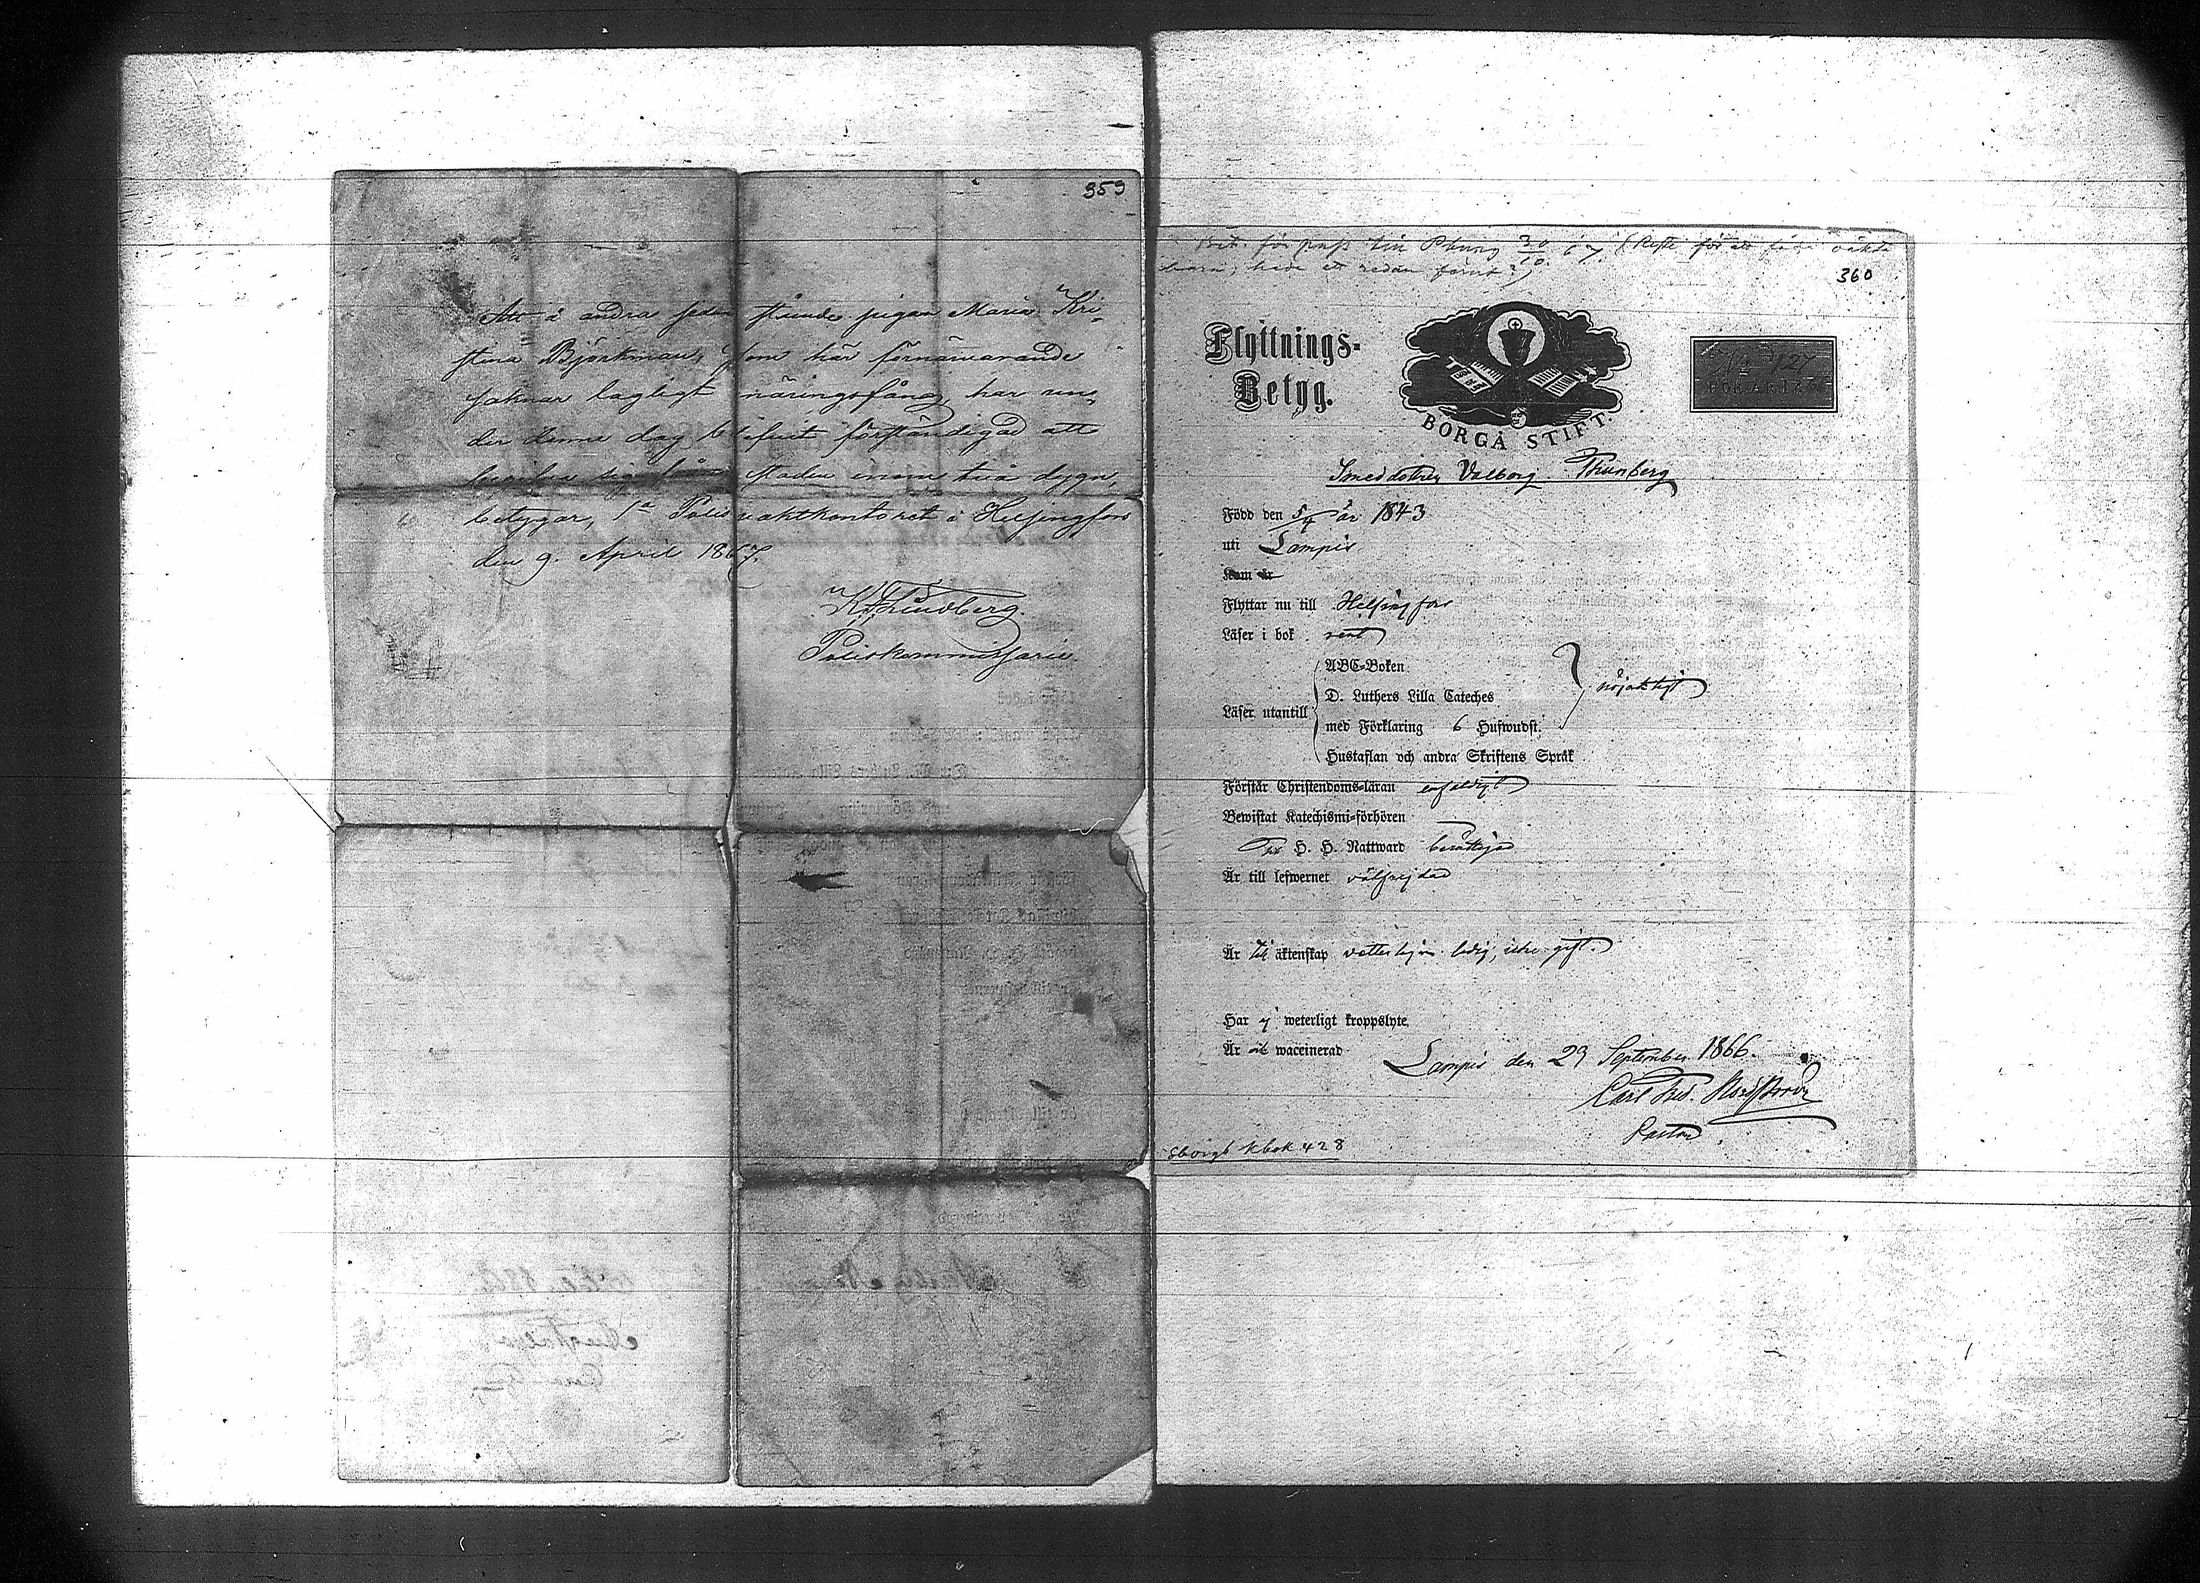 359
Att å andra sidan stående pigan Maria Kri-
stina Björkman, som här förnärvarande
saknar lagligt näringsfång, har un-
der denne dag blifvit förständigad att
begifva sig från staden inom två dygn,
betygar, 1a Polisvaktkontoret i Helsingfors
den 9. April 1867.
Lindberg.
Poliskommissarie.
Bet. för pass till Pburg 30/10 67. (Reste för att föda oäkta
barn, hade ett redan förut?)
360
Flyttnings-
Betyg.
BORGÅ STIFT.
No 127
Smeddottren Valborg Thunberg
Född den 5/4 år 1843
uti Lampis
Kom är
Flyttar nu till Helsingfors
Läser i bok rent
Läser utantill
ABC-Boken
D. Luthers Lilla Cateches
med Förklaring 6 Hufwudst.
Hustaflan och andra Skriftens Språk
nöjaktigt
Förstår Christendoms-läran enfaldigt
Bewistat Katechismi-förhören
Till H. H. Nattward berättigad
Är till lefwernet välfrejdad
Är till äktenskap ledig, icke gift.
Har ej weterligt kroppslyte
Är waccinerad
Lampis den 29 September 1866.
Carl Fred. Nordström
Pastor
kbok 428